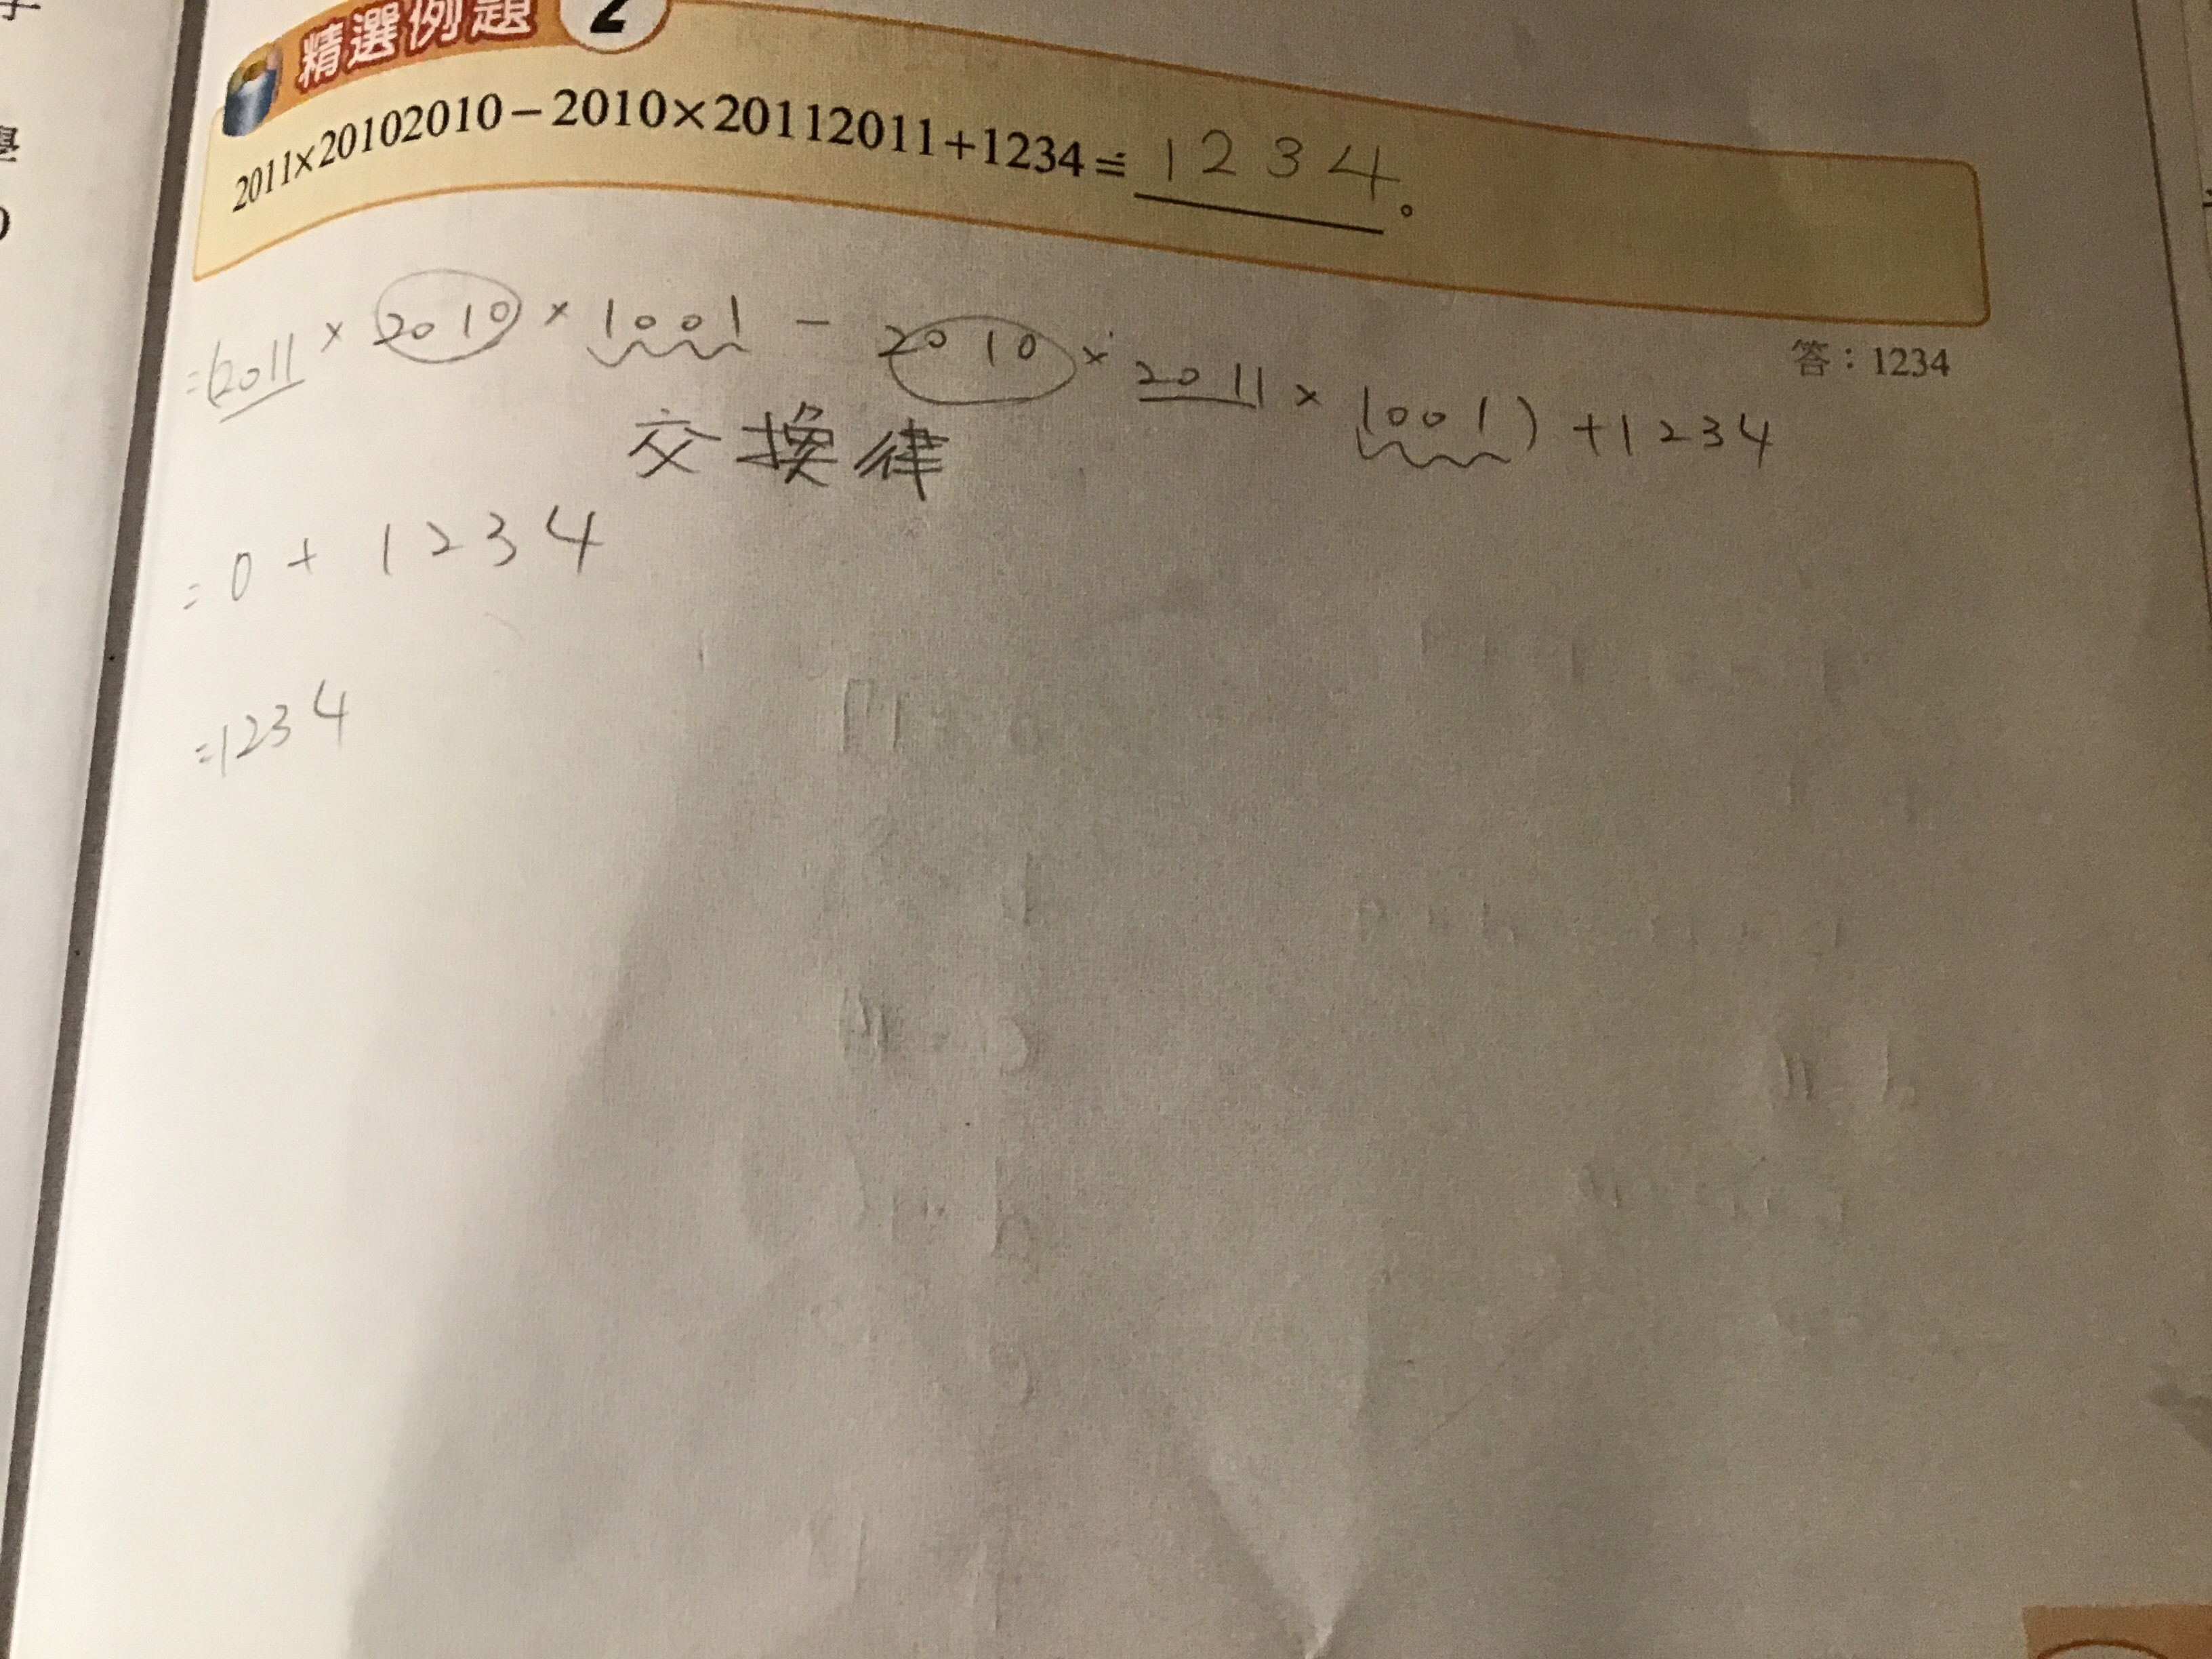 精選例題 2
2011×20102010－2010×20112011+1234= 1234。
答：1234
=(2011 × 2010 × 1001 − 2010 × 2011 × 1001) +1234
交換律
= 0 + 1234
=1234